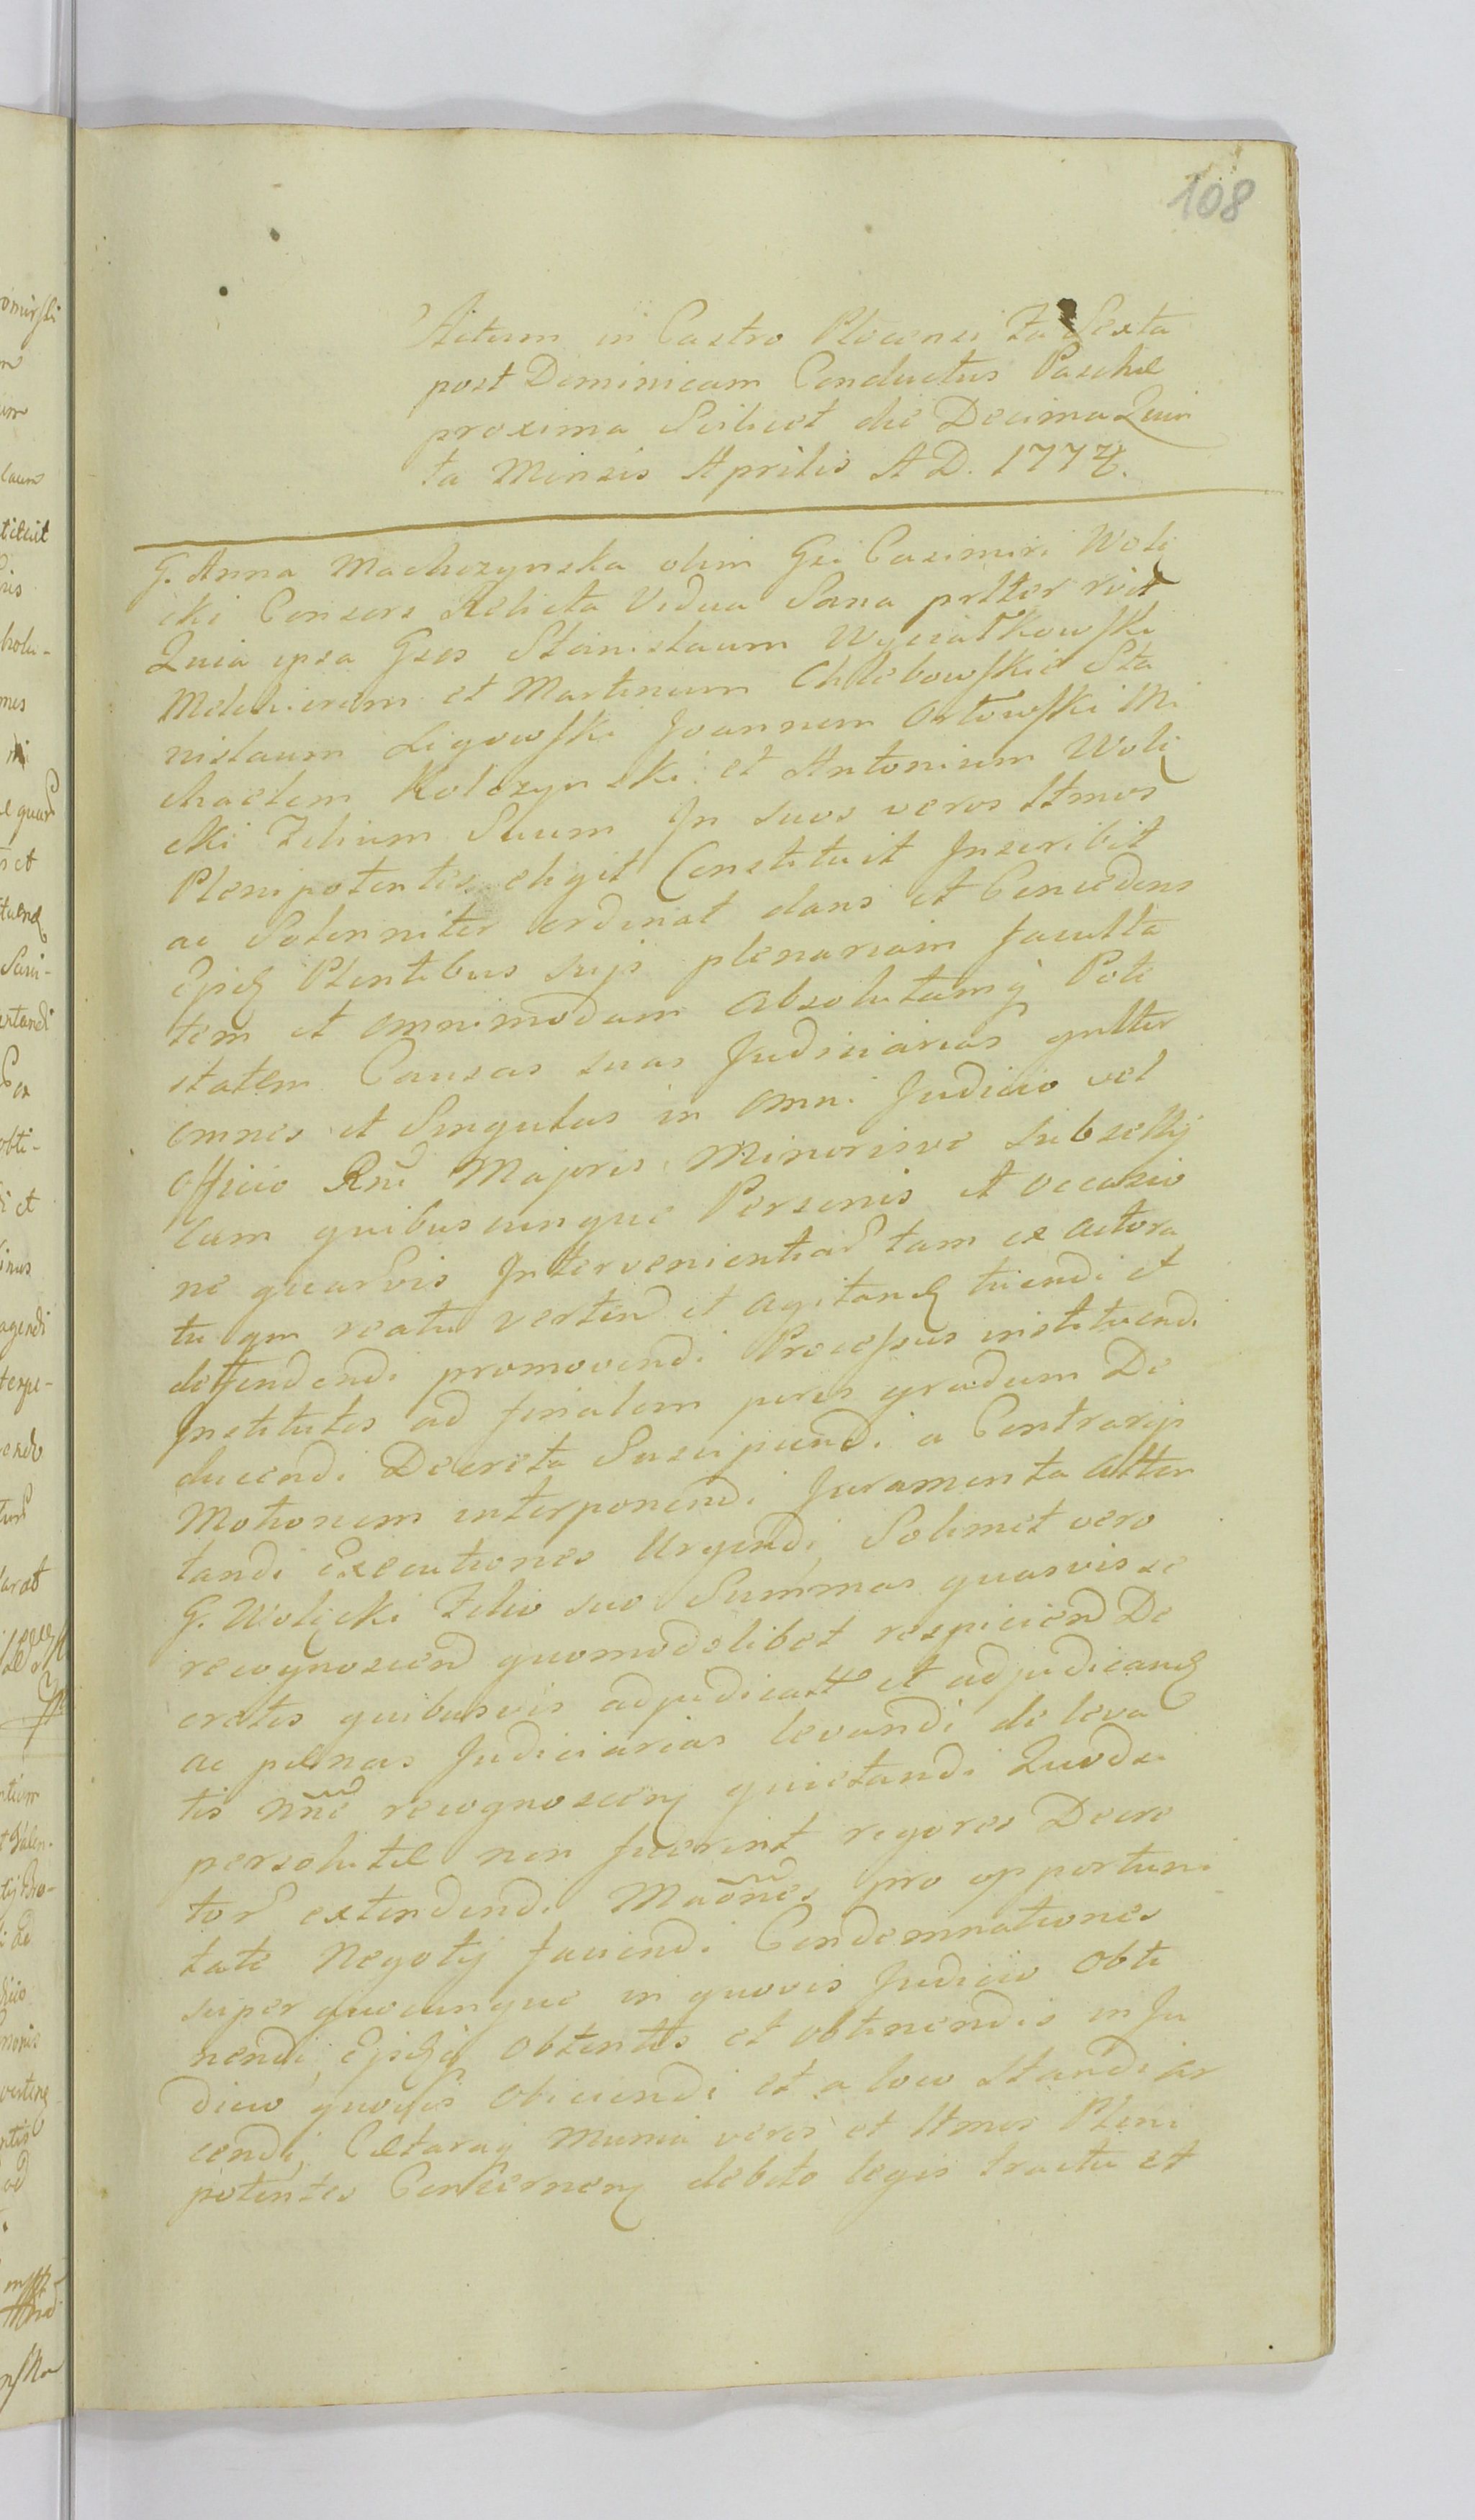 108
Actum in Castro Plocensi Fa Sexta
post Dominicam Conductus Paschæ
proxima Scilicet die Decima Quin
ta Mensis Aprilis A D. 1774.
G. Anna Machczynska olim Gsi Casimiri Woli
cki Consors Relicta Vidua Sana prltter rect
Quia ipsa Gsos Stanislaum Wyciałkowski
Melchiorem et Martinum Chlebowskie Sta
nislaum Ligowski Joannem Ostowski Mi
chaelem Kolczynski et Antonium Woli
cki Filium Suum In suos veros ltmos
Plenipotentes eligit Constituit Inscribit
ac Solenniter ordinat dans et Concedens
Ejsq Plentibus suis plenariam faculta
tem et omnimodam absolutamq Pote
statem Causas suas Judiciarias gnltter
omnes et Singulas in omni Judicio vel
Officio Rni Majoris Minorisve Subsellij
Cum quibuscunque Personis et occasio
ne quarvis Intervenientiar tam ex actora
tu qm reatu verten et agitanq tuendi et
deffendendi promovendi Processus instituendi
Institutos ad finalem juris gradum De
ducendi Decreta Suscipiendi a Contrarijs
Motionem interponendi Juramenta atten
tandi Executiones Urgendi, Solimet vero
G. Wolicki Filio suo Summas quasvis se
recognoscend quomodolibet respiciend De
cretis quibusvis adjudicatt et adjudicanq
ac pænas Judiciarias levandi de leva
tis nne recognoscenq quietandi Quodsi
persolutæ non fuerint rigores Decre
tor extendendi Maones pro opportuni
tate Negotij faciendi Condemnationes
super quocunque in quovis Judicio Obti
nendi, Ejsq obtentis et obtinendis in Ju
dicio quovis obiiciendi et a loco standi ar
cendi, Cætaraq Munia veros et ltmos Pleni
potentes Concernenq debito legis tractu et